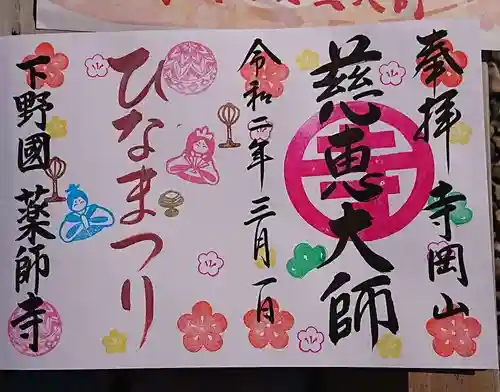 奉拝 寺岡山
慈恵大師
令和二年三月一日
ひなまつり
下野國 薬師寺